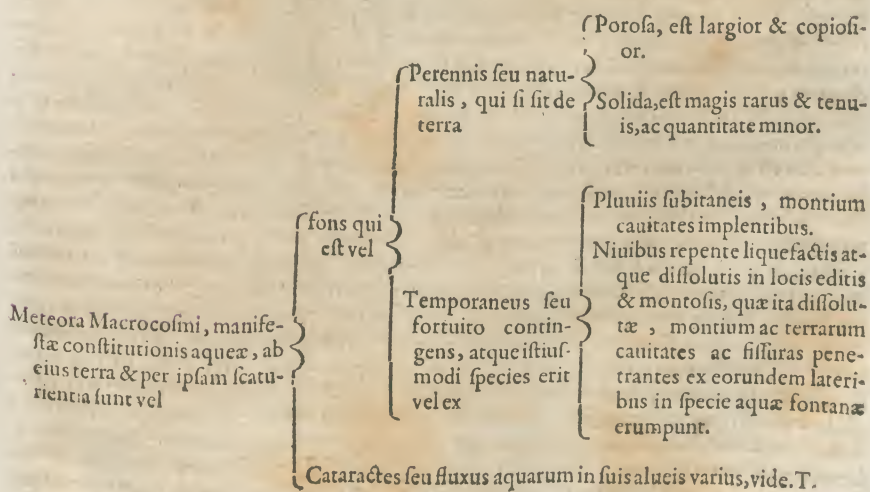 Meteora Macrocosmi, manife-
stæ constitutionis aqueæ, ab
eius terra & per ipsam scatu-
rientia sunt vel
fons qui
est vel
Perennis seu natu-
ralis, qui si sit de
terra
Porosa, est largior & copiosi-
or.
Solida, est magis rarus & tenu-
is, ac quantitate minor.
Temporaneus seu
fortuito contin-
gens, atque istius-
modi species erit
vel ex
Pluuiis subitaneis, montium
cauitates implentibus.
Niuibus repente liquefactis at-
que dissolutis in locis editis
& montosis, quæ ita dissolu-
tæ, montium ac terrarum
cauitates ac fissuras pene-
trantes ex eorundem lateri-
bus in specie aquæ fontanæ
erumpunt.
Cataractes seu fluxus aquarum in suis alueis varius, vide. T.